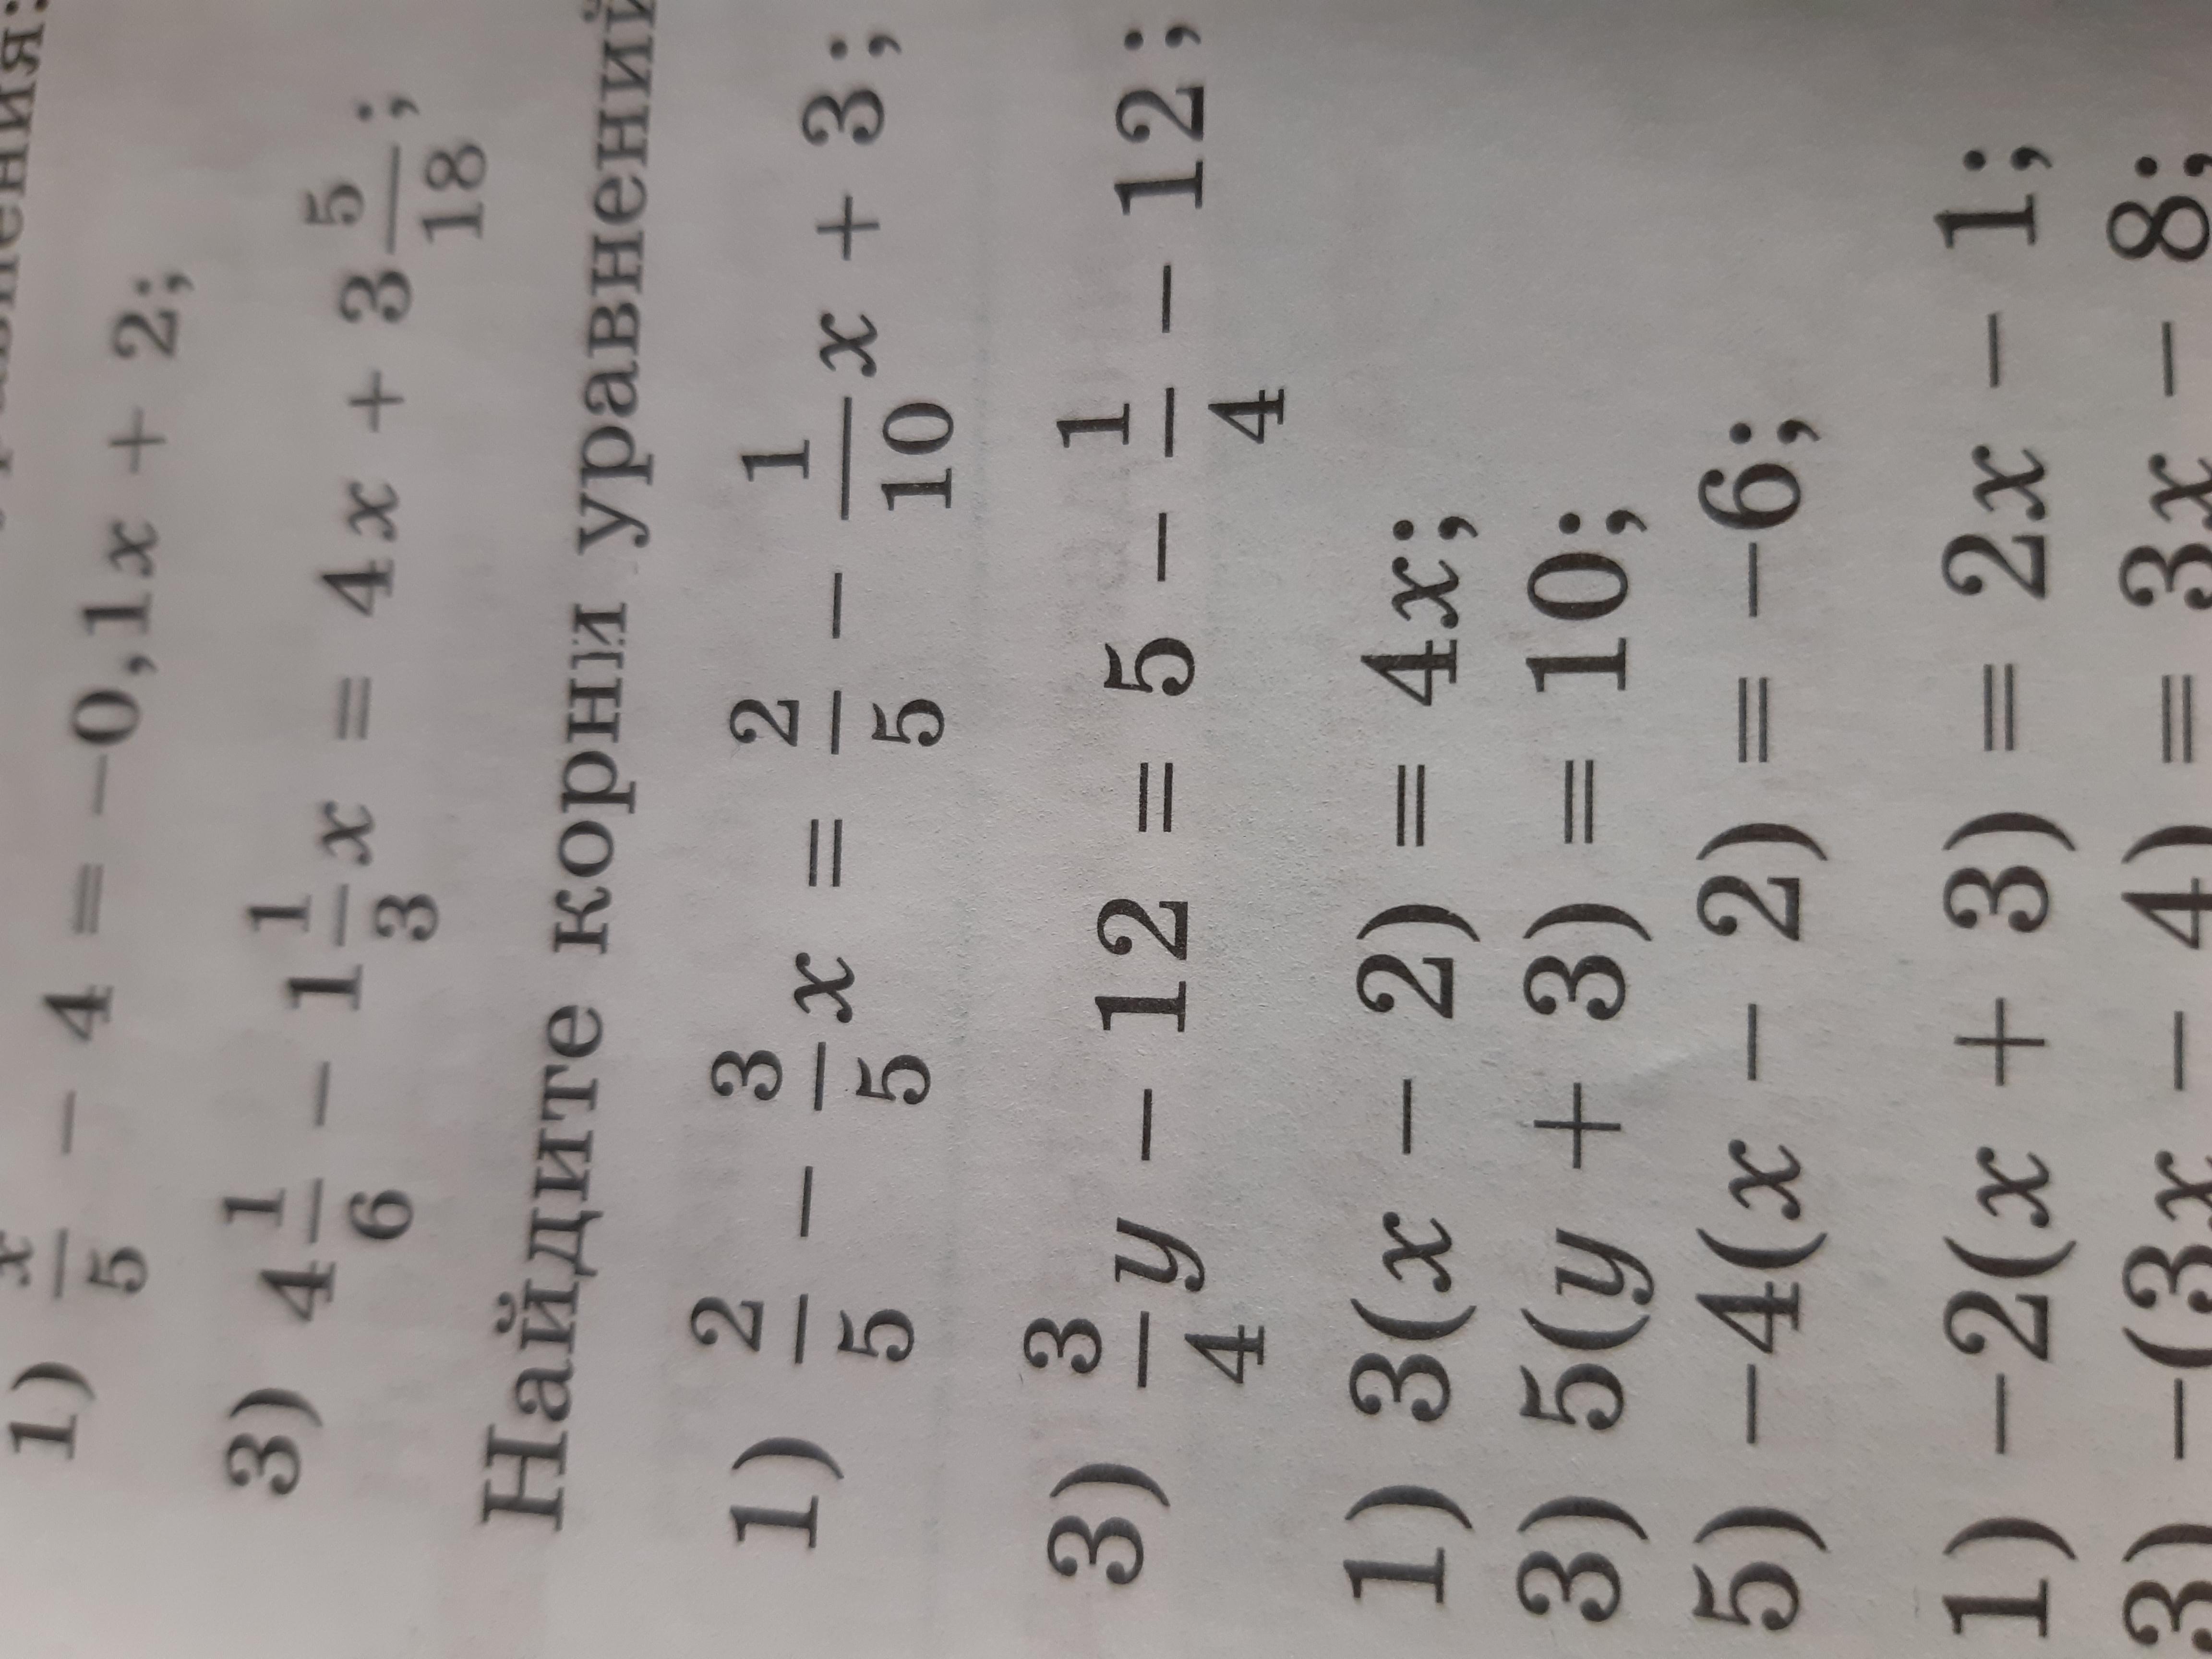 1) x/5 − 4 = −0,1x + 2;
3) 4 1/6 − 1 1/3 x = 4x + 3 5/18;
Найдите корни уравнений
1) 2/5 − 3/5 x = 2/5 − 1/10 x + 3;
3) 3/4 y − 12 = 5 − 1/4 − 12;
1) 3(x − 2) = 4x;
3) 5(y + 3) = 10;
5) −4(x − 2) = −6;
1) −2(x + 3) = 2x − 1;
3) −(3x − 4) = 3x − 8;